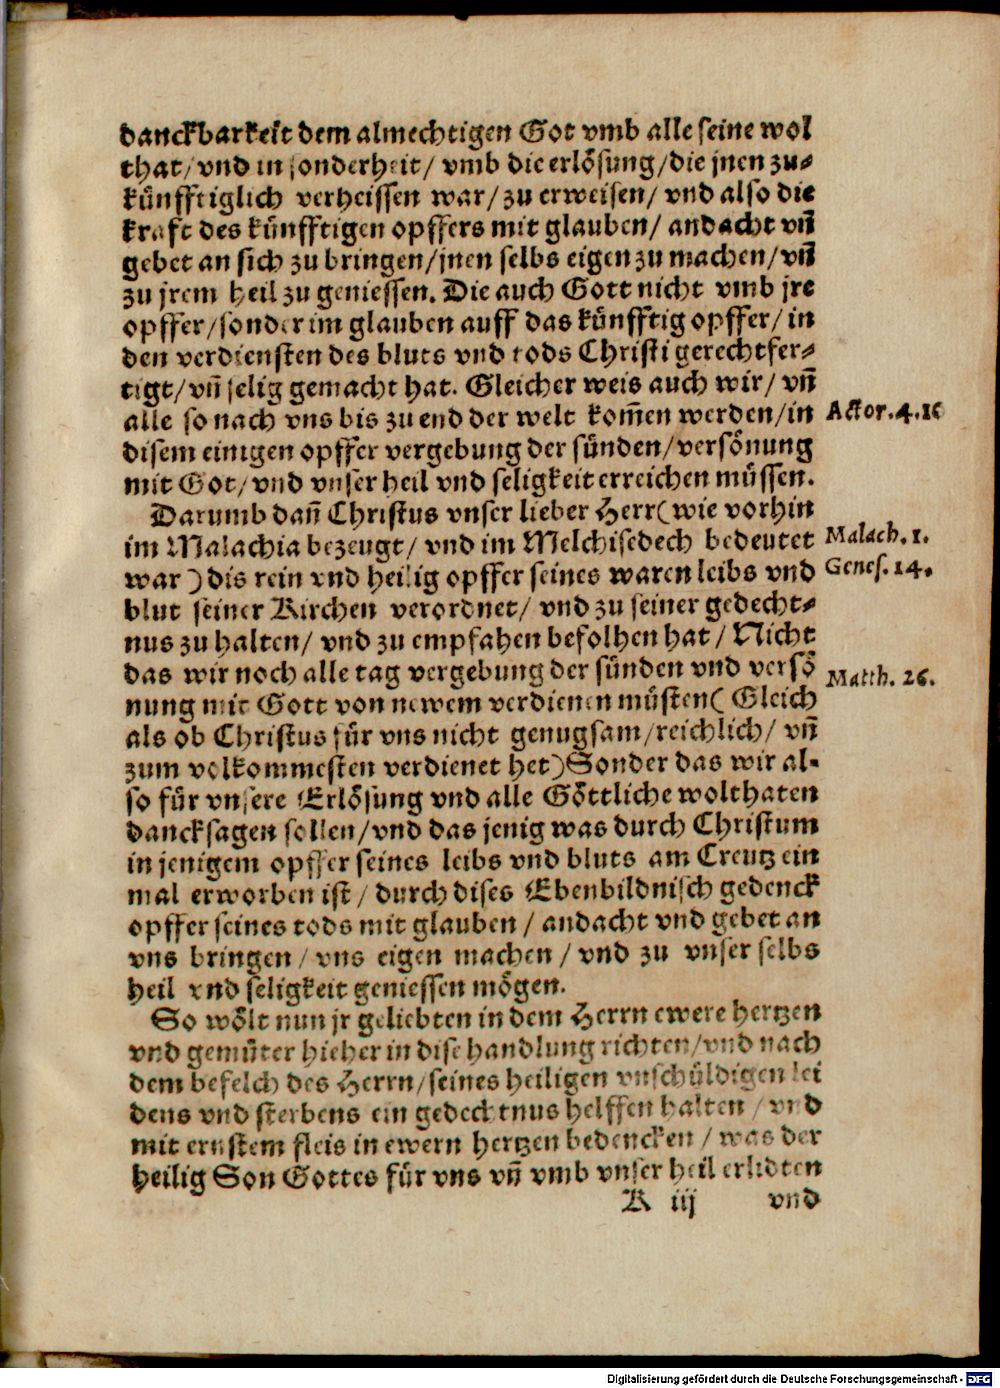 danckbarkeit dem almechtigen Got vmb alle seine wol
that/ vnd in sonderheit/ vmb die erlösung/ die jnen zu⸗
künfftiglich verheissen war/ zu erweisen/ vnd also die
kraft des künfftigen opffers mit glauben/ andacht vñ
gebet an sich zu bringen/ jnen selbs eigen zu machen/ vñ
zu jrem heil zu geniessen. Die auch Gott nicht vmb jre
opffer/ sonder im glauben auff das künfftig opffer/ in
den verdiensten des bluts vnd tods Christi gerechtfer⸗
tigt/ vñ selig gemacht hat. Gleicher weis auch wir/ vñ
alle so nach vns bis zu end der welt kom̃en werden/ in
Actor. 4. 10
disem einigen opffer vergebung der sünden/ versönung
mit Got/ vnd vnser heil vnd seligkeit erreichen müssen.
Darumb dañ Christus vnser lieber Herr (wie vorhin
im Malachia bezeugt/ vnd im Melchisedech bedeutet
Malach. 1.
war) dis rein vnd heilig opffer seines waren leibs vnd
Genes. 14.
blut seiner Kirchen verordnet/ vnd zu seiner gedecht⸗
nus zu halten/ vnd zu empfahen befolhen hat/ Nicht
das wir noch alle tag vergebung der sünden vnd versö
Matth. 26.
nung mit Gott von newem verdienen müsten (Gleich
als ob Christus für vns nicht genugsam/ reichlich/ vñ
zum volkommesten verdienet het) Sonder das wir al⸗
so für vnsere Erlösung vnd alle Göttliche wolthaten
dancksagen sollen/ vnd das jenig was durch Christum
in jenigem opffer seines leibs vnd bluts am Creutz ein
mal erworben ist/ durch dises Ebenbildnisch gedenck
opffer seines tods mit glauben/ andacht vnd gebet an
vns bringen/ vns eigen machen/ vnd zu vnser selbs
heil vnd seligkeit geniessen mögen.
So wölt nun jr geliebten in dem Herrn ewere hertzen
vnd gemüter hieher in dise handlung richten/ vnd nach
dem befelch des Herrn/ seines heiligen vnschüldigen lei
dens vnd sterbens ein gedechtnus helffen halten/ vnd
mit ernstem fleis in ewern hertzen bedencken/ was der
heilig Son Gottes für vns vñ vmb vnser heil erlidten
K iij vnd
Digitalisierung gefördert durch die Deutsche Forschungsgemeinschaft - DFG